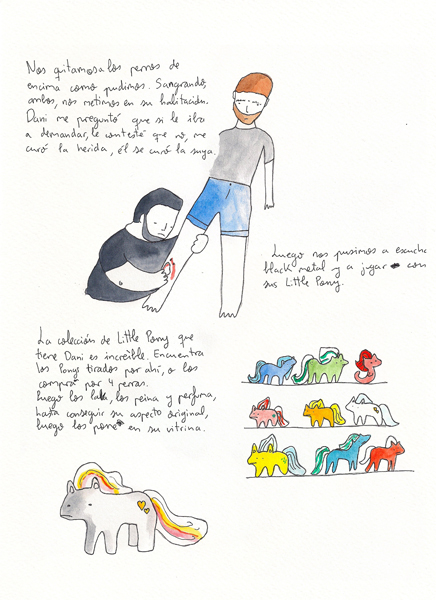 Nos quitamos a los perros de
encima como pudimos. Sangrando,
ambos, nos metimos en su habitación.
Dani me preguntó que si le iba
a demandar, le contesté que no, me
curó la herida, él se curó la suya.
Luego nos pusimos a escuchar
black metal y a jugar con
sus Little Pony.
La colección de Little Pony que
tiene Dani es increíble. Encuentra
los Ponys tirados por ahí, o los
compra por 4 perras.
Luego los lava, los peina y perfuma,
hasta conseguir su aspecto original,
luego los pone en su vitrina.